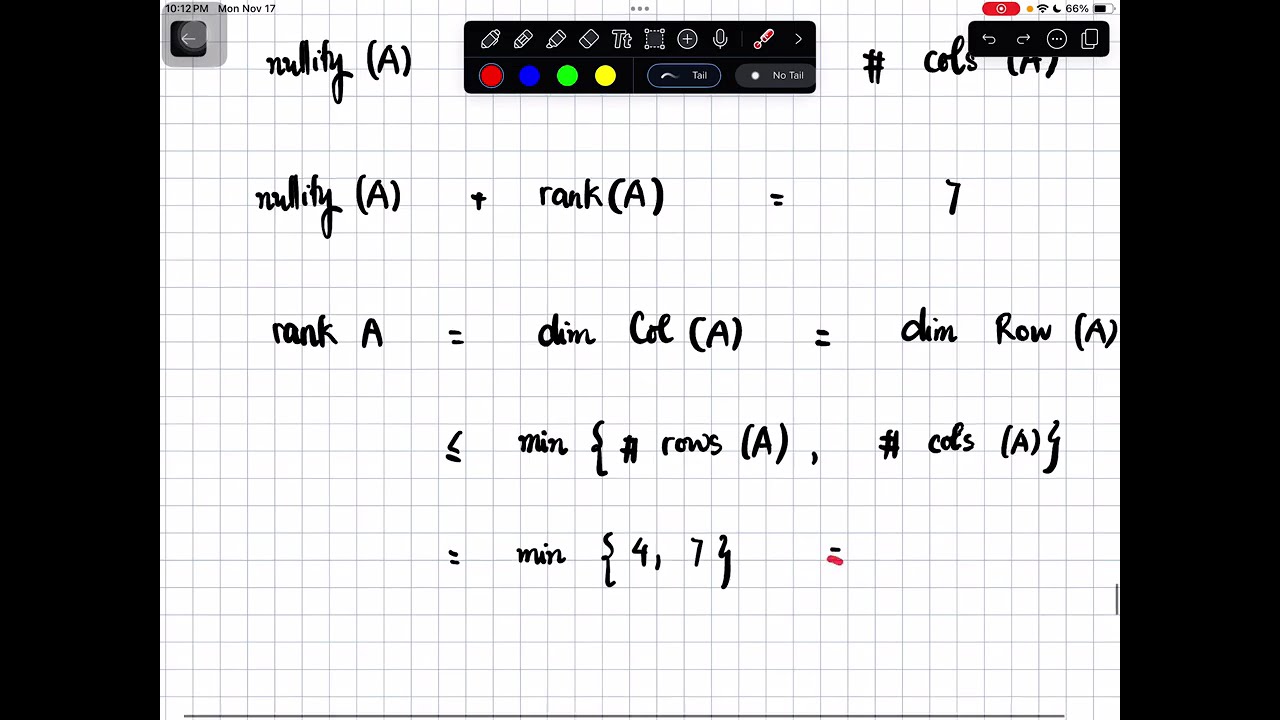 10:12 PM Mon Nov 17
66%
Tt
Tail No Tail
nullity (A) # cols (A)
nullity (A) + rank(A) = 7
rank A = dim Col (A) = dim Row (A)
≤ min { # rows (A) , # cols (A)}
= min { 4, 7 } =